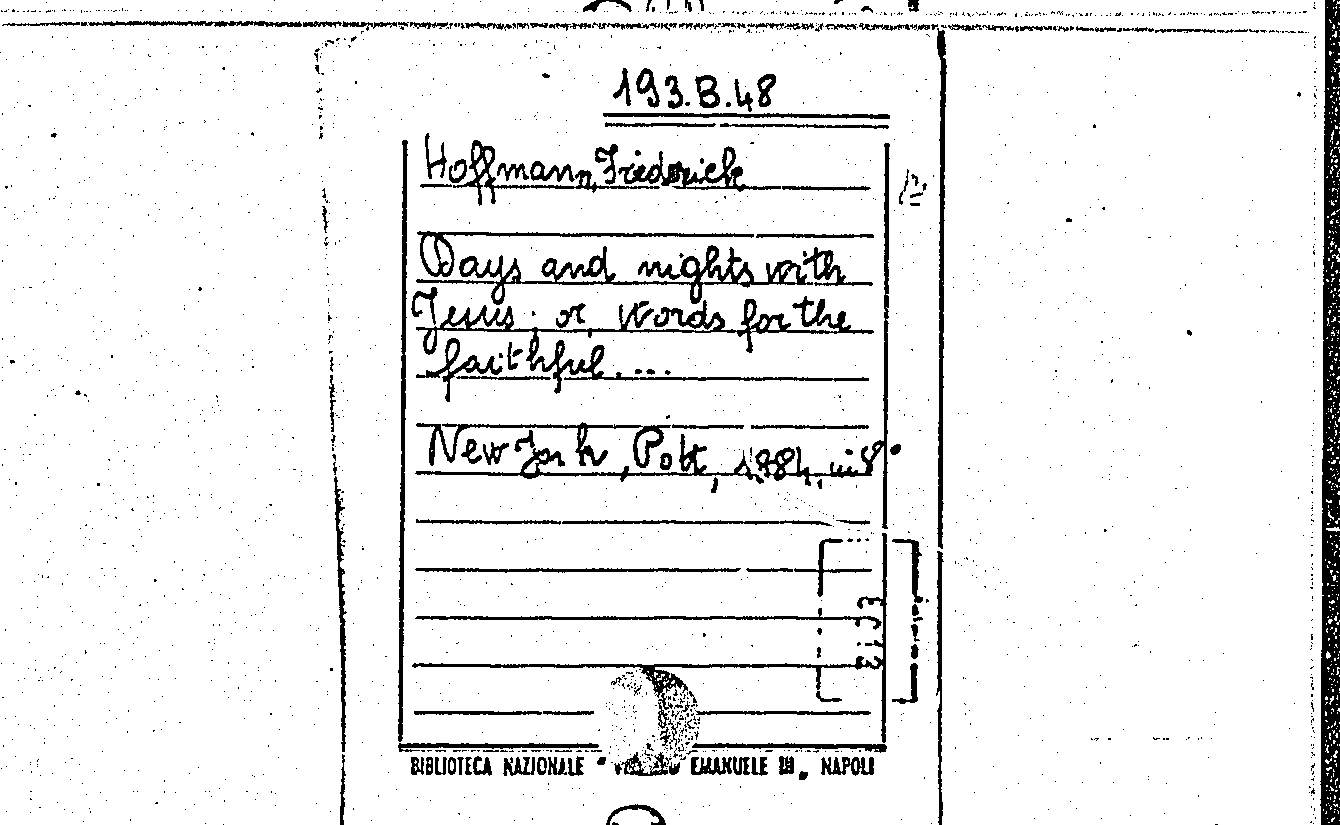 193.B.48
Hoffmann, Friederich
Days and nights with
Jesus; or, Words for the
faithful....
New York, Pott, 1884, in 8°
BIBLIOTECA NAZIONALE " EMANUELE III „ NAPOLI